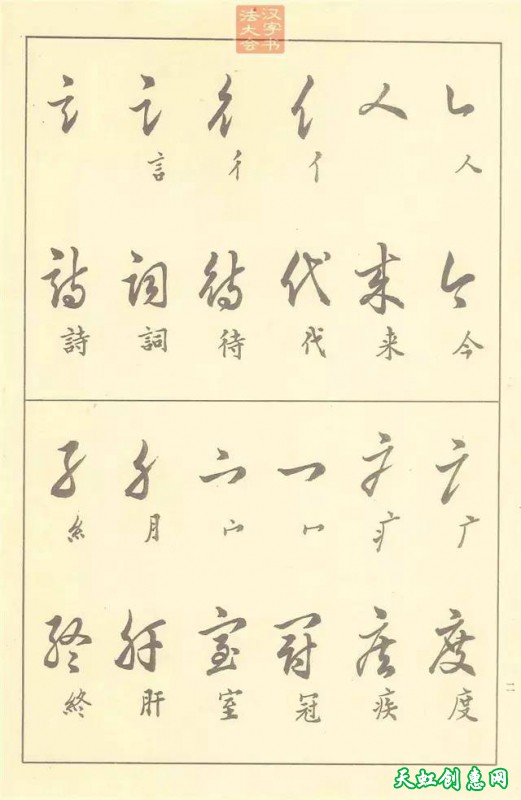 汉字书法大会
人 亻 彳 言
今 来 代 待 詞 詩
广 疒 冖 宀 月 糹
度 疾 冠 室 肝 終
二
天虹创惠网